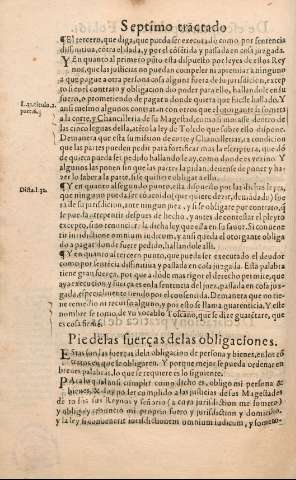 Septimo tractado
¶ El tercero, que diga, que pueda ser executado de uno por sentencia
difinitiua, cōtra el dada, y por el cōsētida y passada en cosa juzgada.
¶ Y en quanto al primero pūto esta dispuesto por leyes de estos Rey
nos, que las justicias no puedan compeler ni apremiar a ninguno
a que pague a otra persona alguna fuera de su jurisdicion, excep
to si en el contrato y obligacion dio poder para ello, hallandole en su
fuero, o prometiendo de pagar donde quiera que fuesse hallado. Y
ansi mesmo algunos contratan con otros que el otorgante se someta
a la corte, y Chancilleria de su Magestad, como si morasse dentro de
las cinco leguas della, acerca la ley de Toledo que sobre ello dispone.
Demanera que esta sumission de corte y Chancillerias, a condicion
que las partes pueden pedir para fortificar mas la escriptura, que dō
de quiera pueda ser pedido hallandole ay, como donde es vezino. Y
algunas les ponen sin que las partes la pidan, deuense de poner y ha
zer lo saber a la parte, si se quiere obligar a ello.
Dicta. l. 32.
¶ Y en quanto al segundo punto, esta dispuesto por las dichas leyes,
que ninguno pueda ser conuenido,
da de su jurisdicion, ante ningun juez, y si se obligare por contrato,
se puede arrepentir despues de hecho, y antes de contestar el pleyto
excepto, si no renunciare la dicha ley que esta en su fauor. Si conuene
rit iurisdictione omnium iudicum, y aun queda el otorgante obliga
do a pagar donde fuere pedido, hallandole alli.
¶ Y en quanto al tercero punto, que pueda ser executado el deudor
como por sentēcia difinitiua y passada en cosa juzgada. Esta palabra
tiene gran fuerça, por que a donde mas rigor el derecho permite, que
aya execucion y fuerça es en la sentencia del juez, passada en cosa juz
gada, especialmente siendo por el consentida. Demanera que no tie
ne remission ni recurso alguno, y por esto se llama guarenticia,
nombre se tomo, de vn vocablo Toscano, que se dize guarētare, que
es cosa firme.
Pie de las fuerças de las obligaciones.
Estas son las fuerças de la obligacion de persona y bienes, en los cō
tratos en que se obligaren. Y porque mejor se pueda ordenar en
breues palabras, lo que se requiere es lo siguiente.
Para lo qual ansi cumplir como dicho es, obligo mi persona &
bienes, & doy poder cumplido a las justicias de sus Magestades
de todos sus Reynos y señorios (a cuya jurisdiction me someto)
y obligo, y renuncio mi proprio fuero y jurisdiction y domicilio,
y la ley si conuenerit iurisdictionem omnium iudicum, y someto-